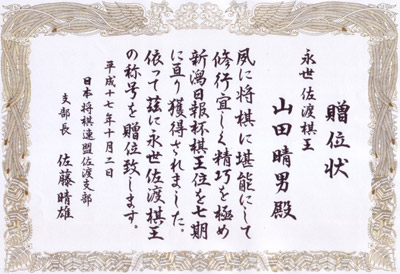 贈位状
永世佐渡棋王
山田晴男殿
夙に将棋に堪能にして
修行宜しく精巧を極め
新潟日報杯棋王位を七期
に亘り獲得されました。
依って茲に永世佐渡棋王
の称号を贈位致します。
平成十七年十月二日
日本将棋連盟佐渡支部
支部長 佐藤晴雄